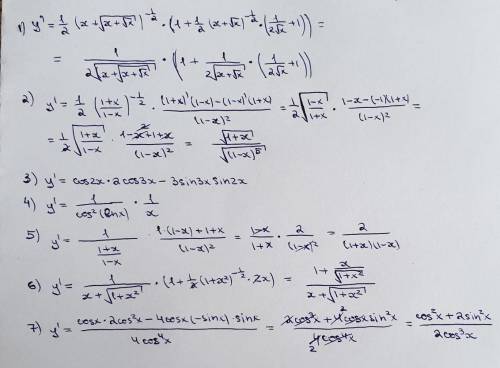 1) y' = 1/2 (x+√(x+√x))^(-1/2) · (1+ 1/2 (x+√x)^(-1/2) · (1/(2√x) +1)) =
= 1/(2√(x+√(x+√x))) · (1 + 1/(2√(x+√x)) · (1/(2√x) +1))
2) y' = 1/2 ((1+x)/(1-x))^(-1/2) · ((1+x)'(1-x)-(1-x)'(1+x))/(1-x)² = 1/2 √((1-x)/(1+x)) · (1-x-(-1)(1+x))/(1-x)² =
= 1/2 √((1+x)/(1-x)) · (1-x+1+x)/(1-x)² = √(1+x)/√((1-x)⁵)
3) y' = cos2x · 2cos3x - 3sin3x sin2x
4) y' = 1/cos²(lnx) · 1/x
5) y' = 1/((1+x)/(1-x)) · (1·(1-x)+1+x)/(1-x)² = (1-x)/(1+x) · 2/(1-x)² = 2/((1+x)(1-x))
6) y' = 1/(x+√(1+x²)) · (1+ 1/2 (1+x²)^(-1/2) · 2x) = (1 + x/√(1+x²))/(x+√(1+x²))
7) y' = (cosx · 2cos²x - 4cosx(-sinx) · sinx)/(4cos⁴x) = (2cos³x + 4cosx sin²x)/(4cos⁴x) = (cos²x + 2sin²x)/(2cos³x)